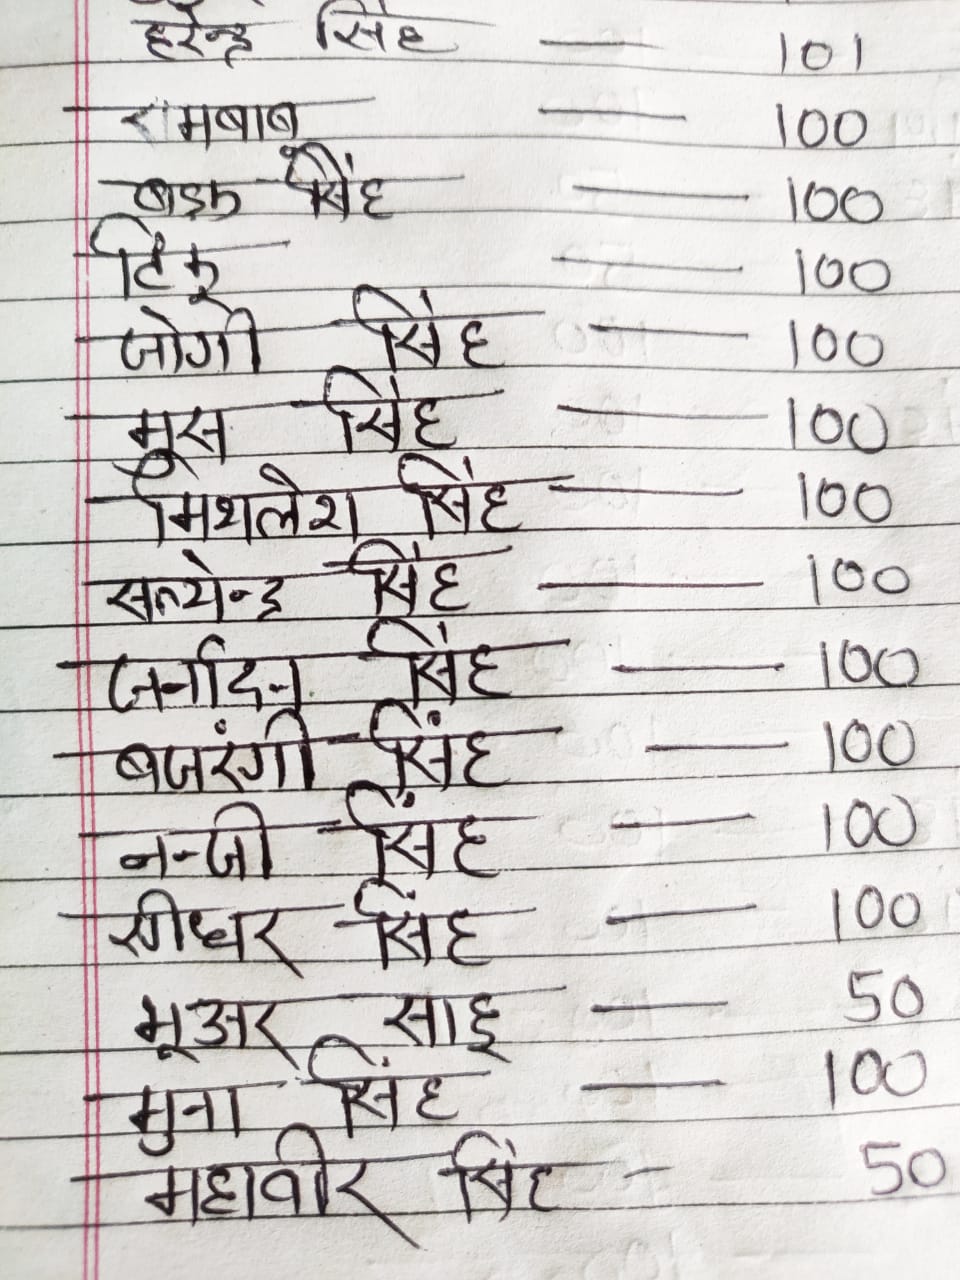 हरेन्द्र सिंह — 101
रामबाबू — 100
सिंह — 100
टिंकू — 100
जोगी सिंह — 100
मूस सिंह — 100
मिथलेश सिंह — 100
सत्येन्द्र सिंह — 100
जर्नादन सिंह — 100
बजरंगी सिंह — 100
नन्जी सिंह — 100
सिंह — 100
भूअर साह — 50
मुना सिंह — 100
महावीर सिंह - 50